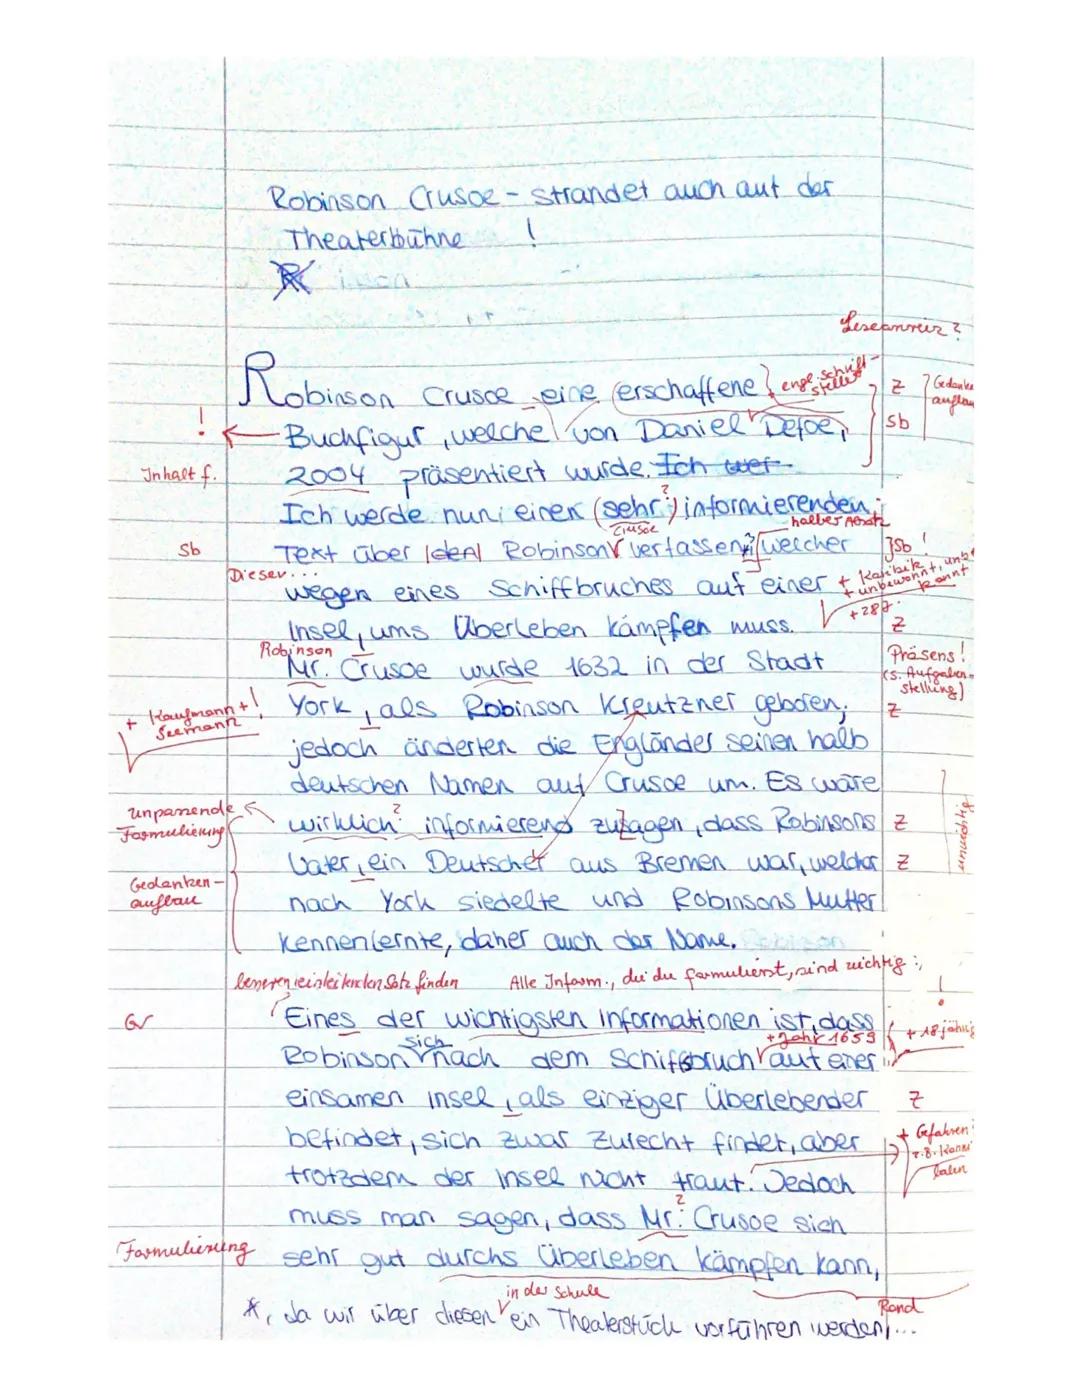 Robinson Crusoe - strandet auch auf der
Theaterbühne !
Leseanreiz?
Robinson Crusoe eine (erschaffene engl. Schrift-
steller Z Gedanken
aufbau
! Buchfigur, welche von Daniel Defoe, Sb
Inhalt f. 2004 präsentiert wurde. Ich wer
Ich werde nun einen (sehr ?) informierenden
Crusoe halber Absatz
Sb Text über |den| Robinson verfassen, welcher Sb !
Dieser... + Karibik
+ unbewohnt, unbekannt
wegen eines Schiffbruches auf einer
+28J.
Insel, ums Überleben kämpfen muss. Z
Robinson Präsens!
(s. Aufgaben-
stellung)
Mr. Crusoe wurde 1632 in der Stadt
+ Kaufmann + !
Seemann
York, als Robinson Kreutzner geboren, Z
jedoch änderten die Engländer seinen halb
deutschen Namen auf Crusoe um. Es wäre
unpassende
Formulierung
wirklich ? informierend zusagen, dass Robinsons Z
unwichtig
Vater, ein Deutscher aus Bremen war, welcher Z
Gedanken-
aufbau
nach York siedelte und Robinsons Mutter
kennenlernte, daher auch der Name.
besseren einleitenden Satz finden Alle Inform., die du formulierst, sind wichtig !
Gr Eines der wichtigsten Informationen ist, dass ! + 18 jährig
sich + Jahr 1659
Robinson nach dem Schiffsbruch auf einer
einsamen Insel, als einziger Überlebender Z
befindet, sich zwar zurecht findet, aber + Gefahren
z.B. Kanni
balen
trotzdem der Insel nicht traut. Jedoch
muss man sagen, dass Mr. ? Crusoe sich
Formulierung sehr gut durchs Überleben kämpfen kann,
Rand
in der Schule
*, da wir über diesen ein Theaterstück vorführen werden, ...